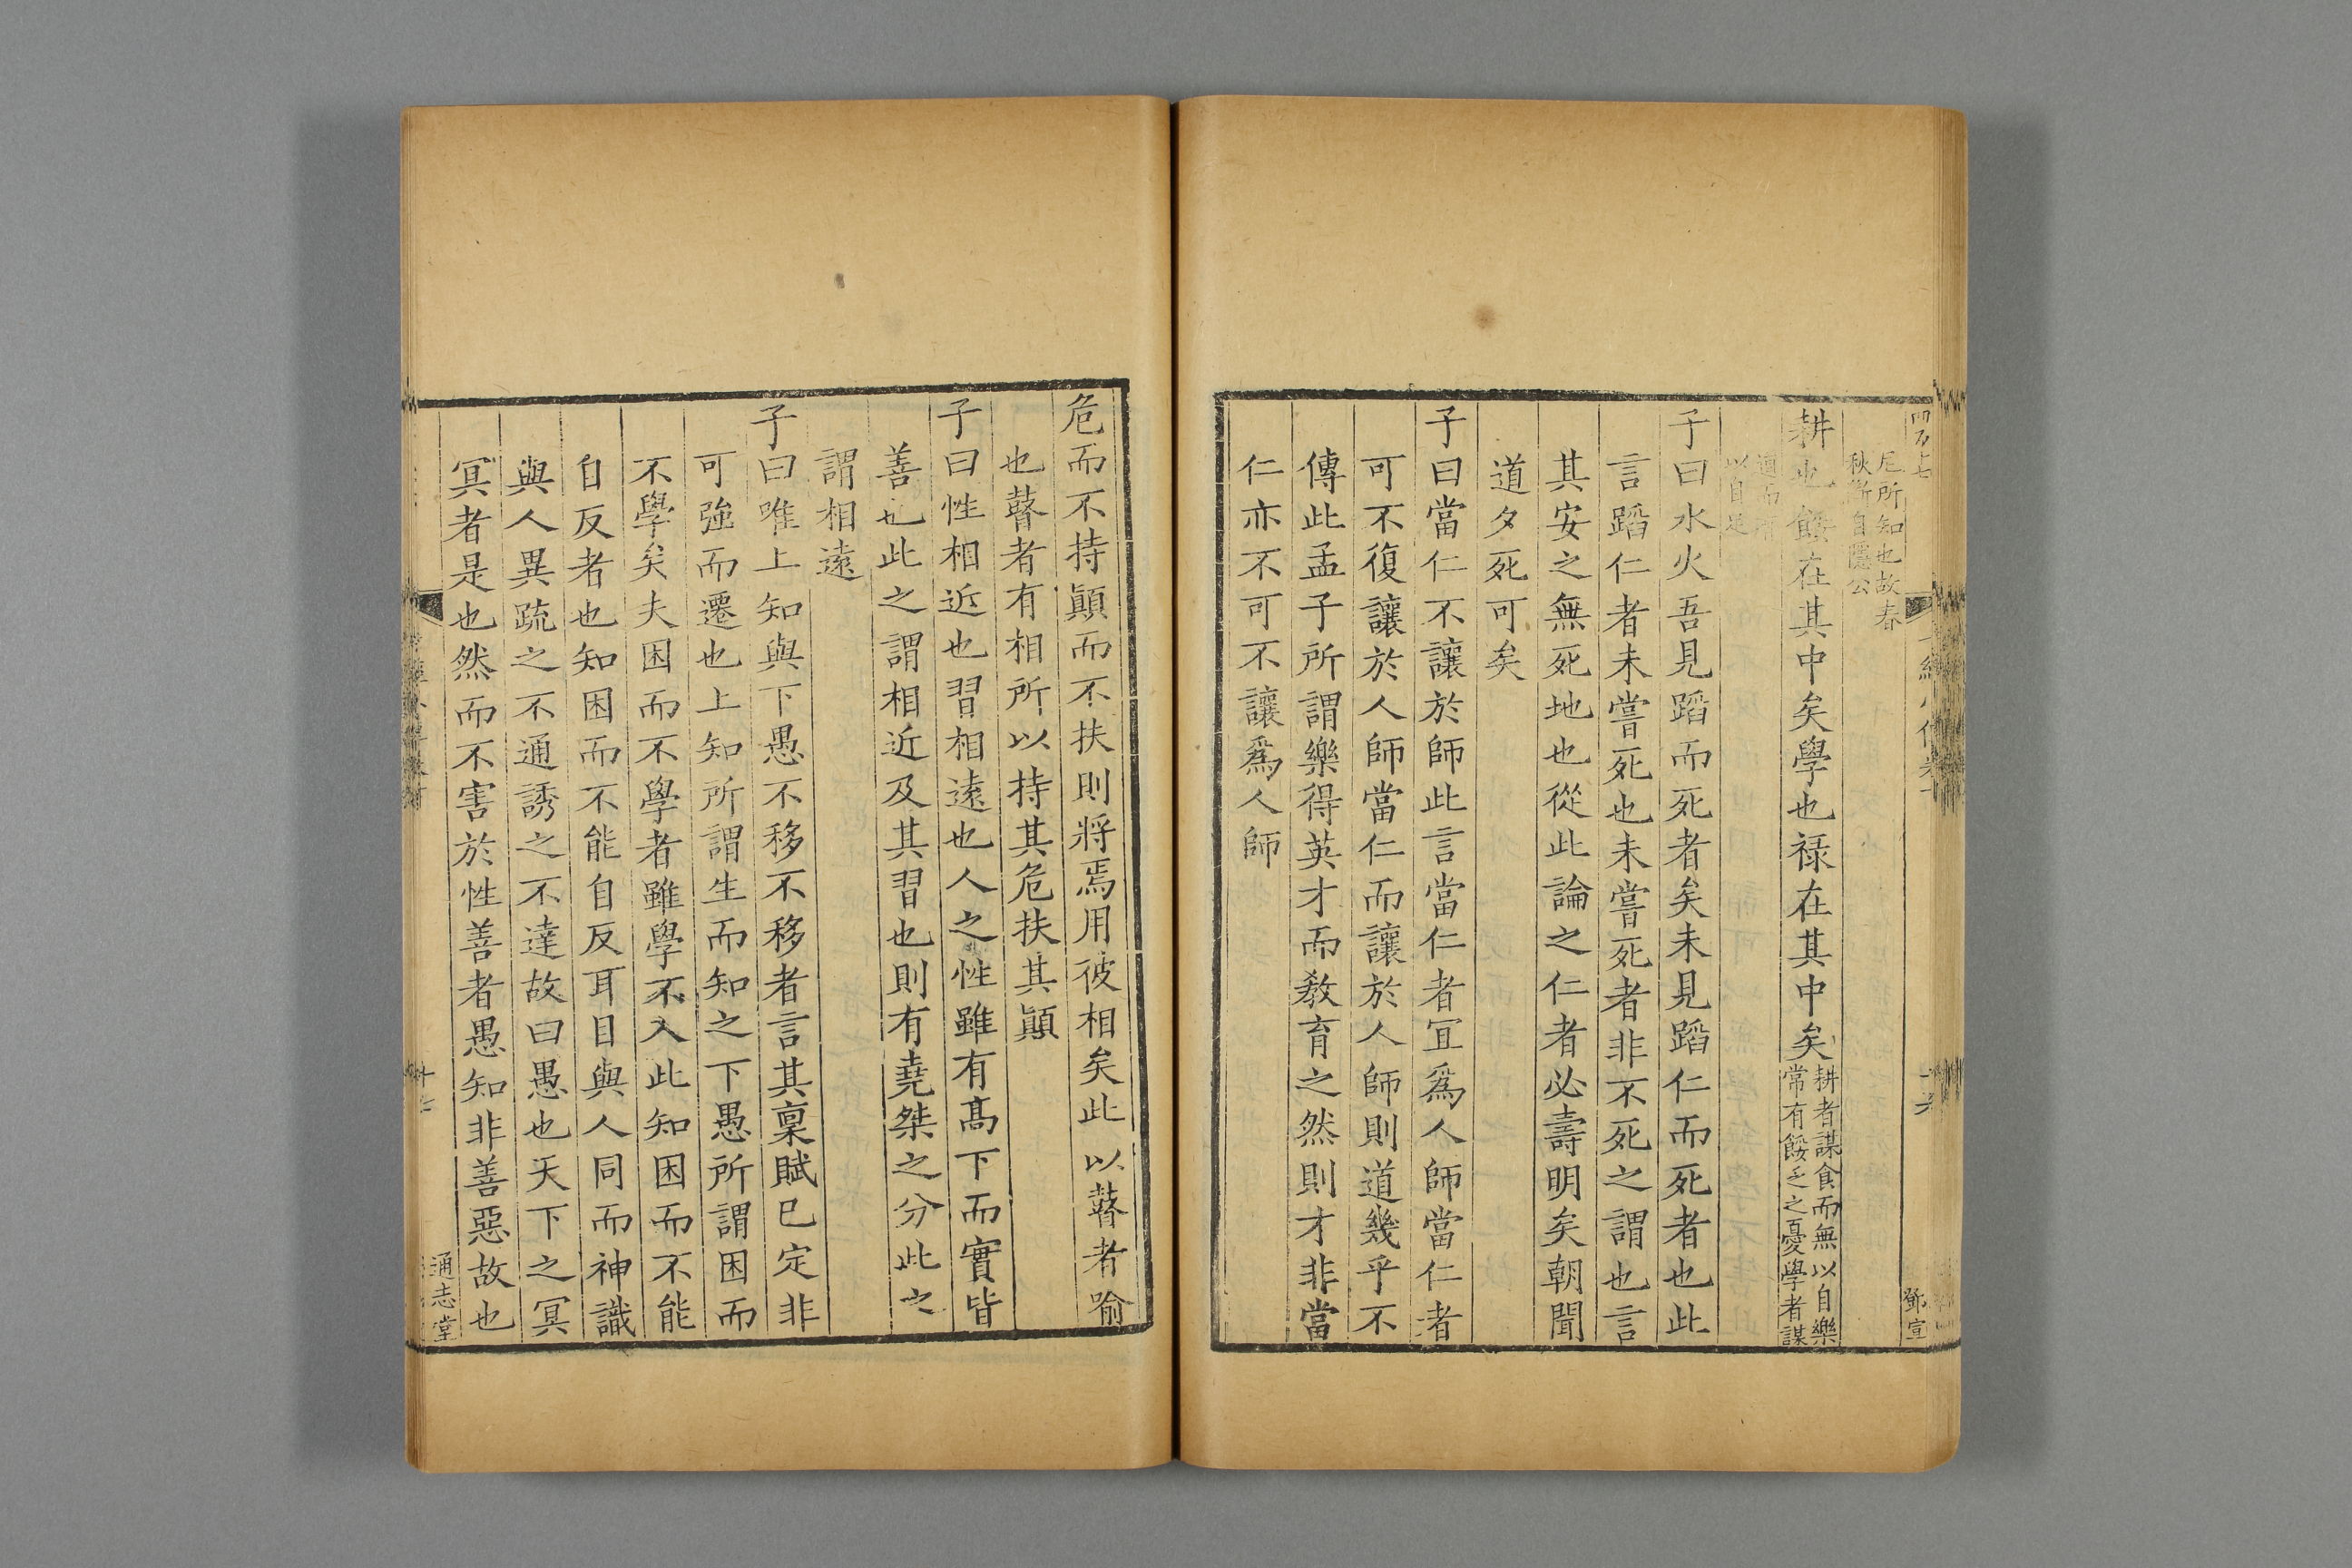 尼所知也故春
秋斷自隱公
耕也餒在其中矣學也禄在其中矣耕者謀食而無以自樂
常有餒乏之憂學者謀
道而有
以自足
子曰水火吾見蹈而死者矣未見蹈仁而死者也此
言蹈仁者未嘗死也未嘗死者非不死之謂也言
其安之無死地也從此論之仁者必壽明矣朝聞
道夕死可矣
子曰當仁不讓於師此言當仁者宜爲人師當仁者
可不復讓於人師當仁而讓於人師則道幾乎不
傳此孟子所謂樂得英才而教育之然則才非當
仁亦不可不讓爲人師
鄧宣
危而不持顛而不扶則將焉用彼相矣此以瞽者喻
也瞽者有相所以持其危扶其顛
子曰性相近也習相遠也人之性雖有高下而實皆
善也此之謂相近及其習也則有堯桀之分此之
謂相遠
子曰唯上知與下愚不移不移者言其稟賦已定非
可強而遷也上知所謂生而知之下愚所謂困而
不學矣夫困而不學者雖學不入此知困而不能
自反者也知困而不能自反耳目與人同而神識
與人異疏之不通誘之不達故曰愚也天下之冥
冥者是也然而不害於性善者愚知非善惡故也
通志堂